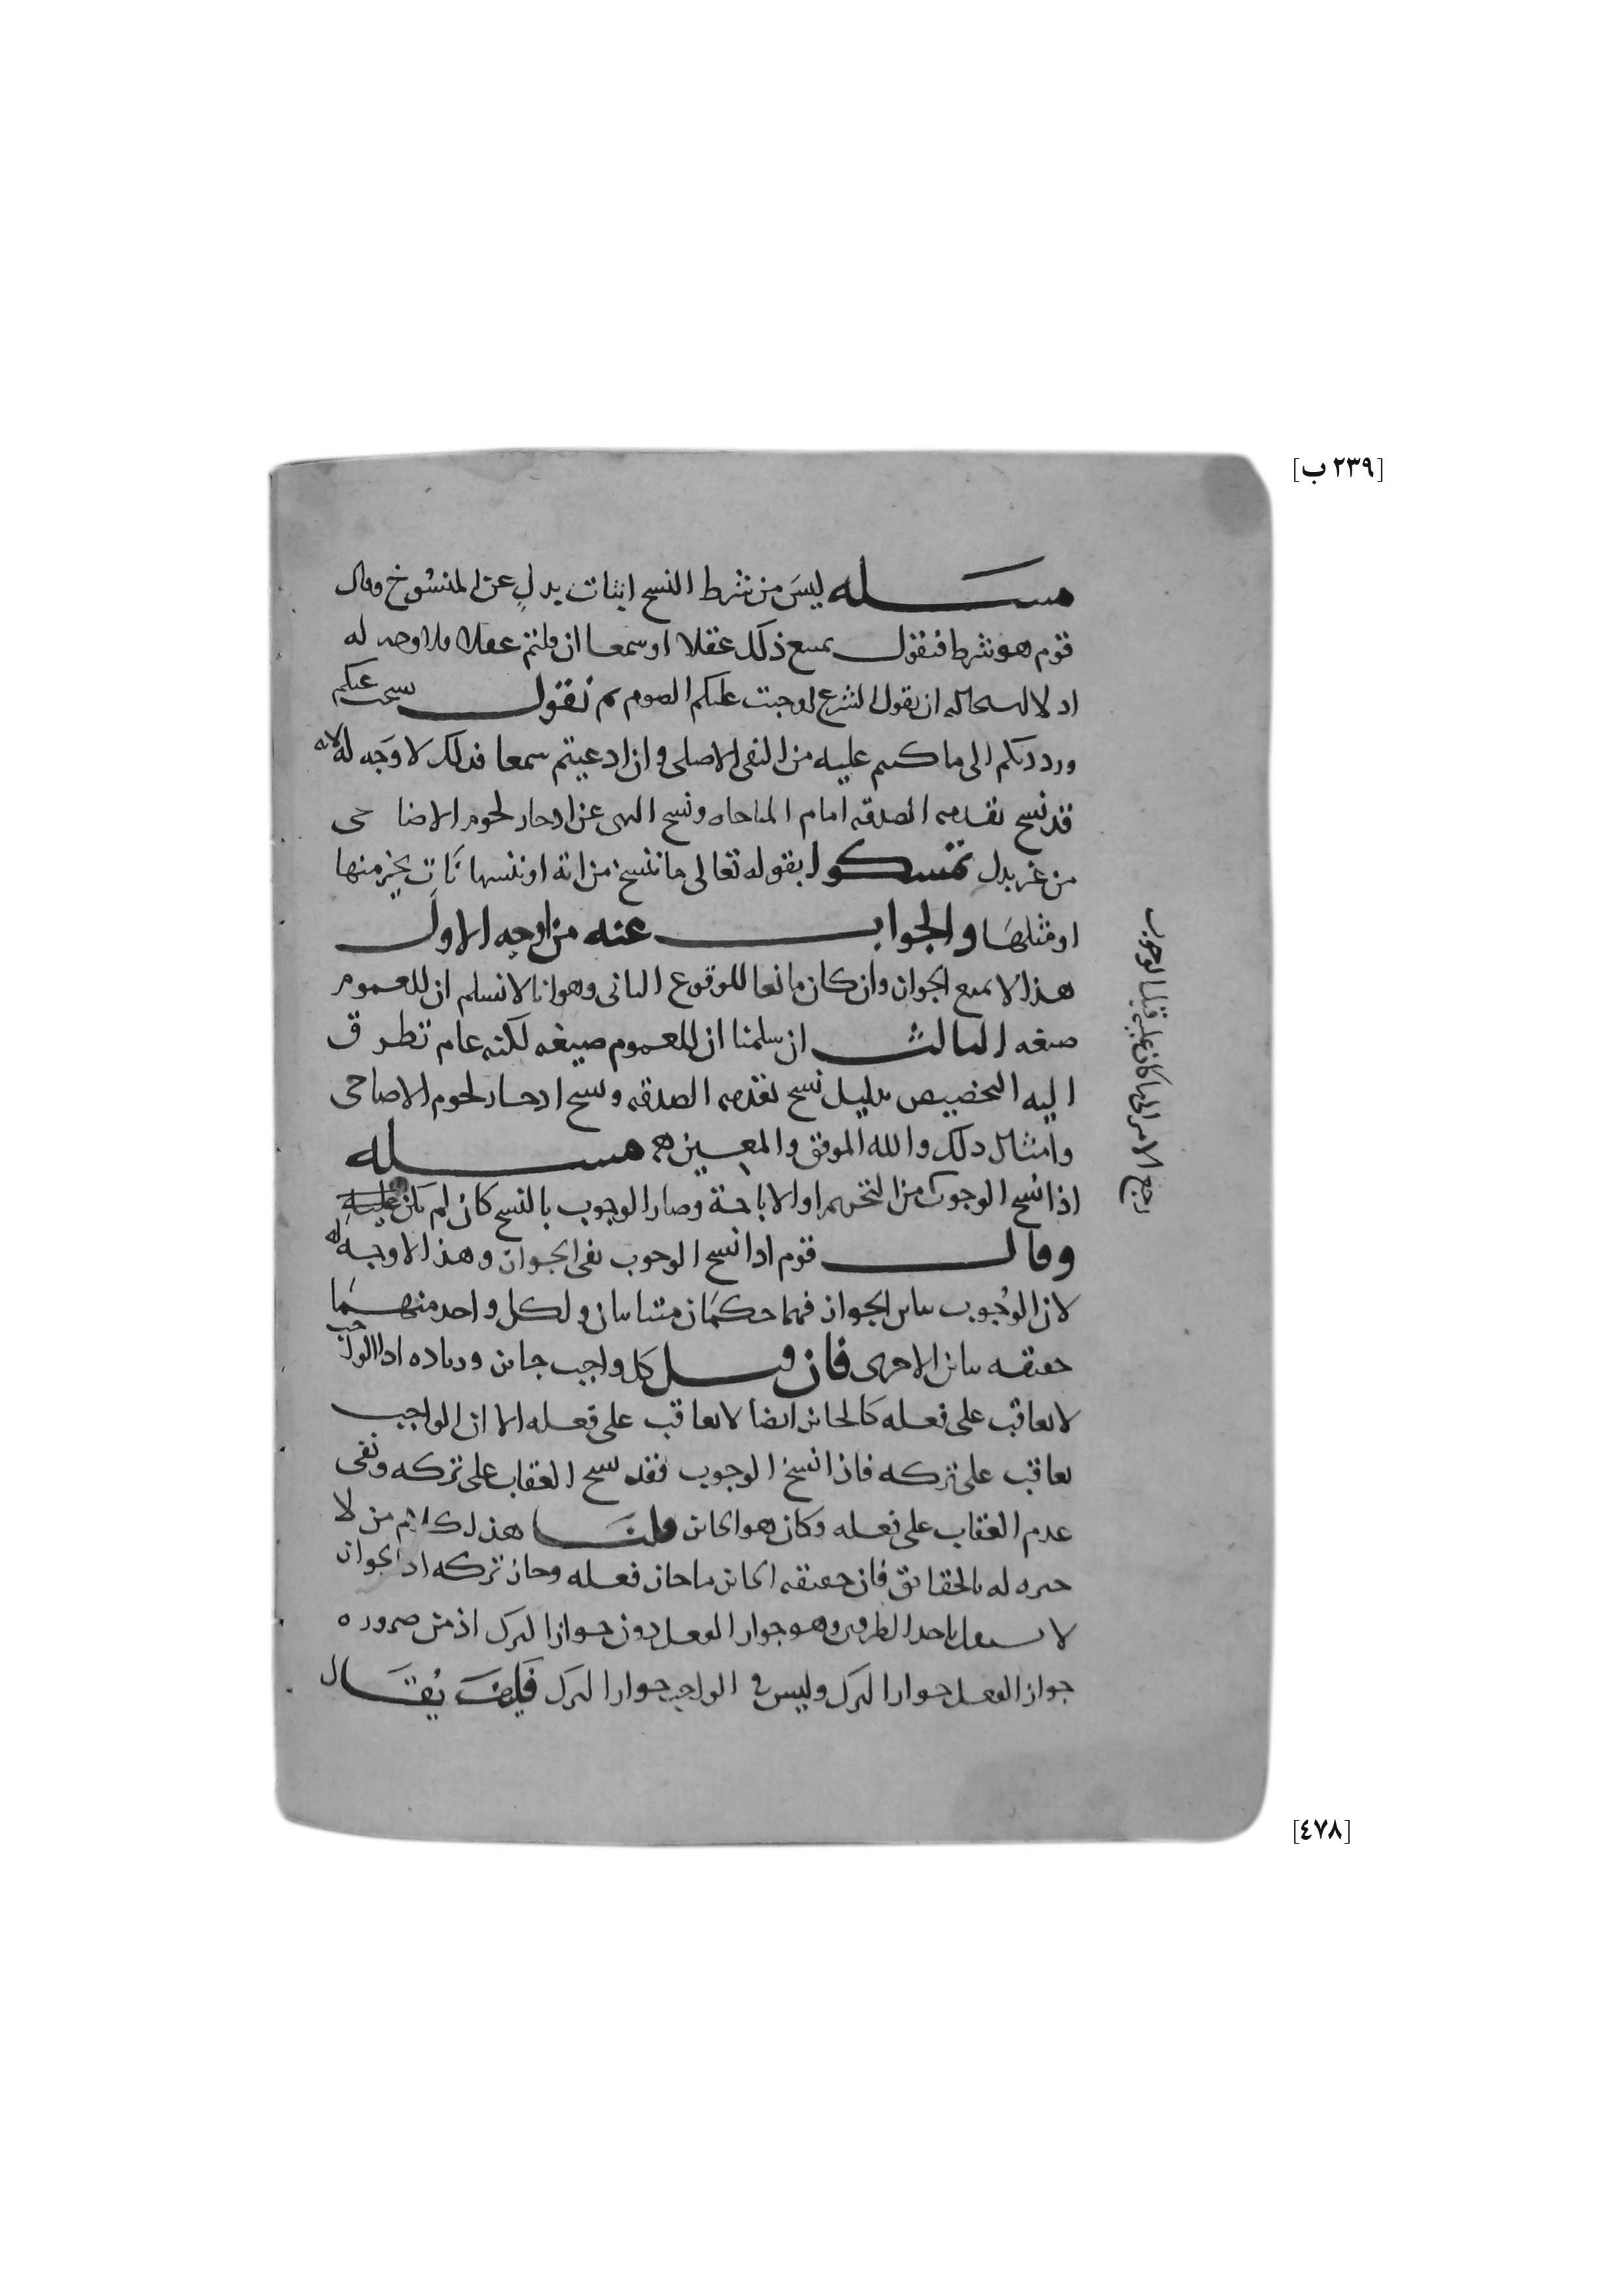 [٢٣٩ ب]
مسـله ليس من شرط النسخ اثبات بدل عن المنسوخ وقال
قوم هو شرط فنقول يمتنع ذلك عقلا او سمعا ان قلتم عقلا فلا وجه له
اذ لا استحالة ان يقول الشرع اوجبت عليكم الصوم ثم نقول نسخت عنكم
ورددتكم الى ما كنتم عليه من النفى الاصلى وان ادعيتم سمعا فذلك لا وجه له لانه
قد نسخ تقدمه الصدقه امام المناجاه ونسخ النهى عن ادخار لحوم الاضاحى
من غير بدل تمسكوا بقوله تعالى ما ننسخ من اية او ننسها نات بخير منها
او مثلها والجواب عنه من اوجه الاول
هذا لا يمنع الجواز وان كان مانعا للوقوع الثانى وهو انا لا نسلم ان للعموم
صيغه الثالث ان سلمنا ان للعموم صيغه لكنه عام تطرق
اليه التخصيص بدليل نسخ تقدمه الصدقه ونسخ ادخار لحوم الاضاحى
وامثال ذلك والله الموفق والمعين مسـله
اذا نسخ الوجوب من التحريم او الاباحة وصار الوجوب بالنسخ كان لم يكن عليه
رجع الامر الى ما كان عليه قبل الوجوب
وقال قوم اذا نسخ الوجوب نفى الجواز وهذا لا وجه له
لان الوجوب يباين الجواز فهما حكمان متباينان ولكل واحد منهما
حقيقه تباين الاخرى فان قيل كل واجب جائز وزياده اذ الواجب
لا يعاقب على فعله كالجائز ايضا لا يعاقب على فعله الا ان الواجب
يعاقب على تركه فاذا نسخ الوجوب فقد نسخ العقاب على تركه ونفى
عدم العقاب على فعله وكان هو الجائز قلنا هذا كلام من لا
خبره له بالحقائق فان حقيقه الجائز ما جاز فعله وجاز تركه اذ الجواز
لا باحد الطرفين وهو جواز الفعل دون جواز الترك اذ من ضروره
جواز الفعل جواز الترك وليس فى الواجب جواز الترك فكيف يقال
[٤٧٨]